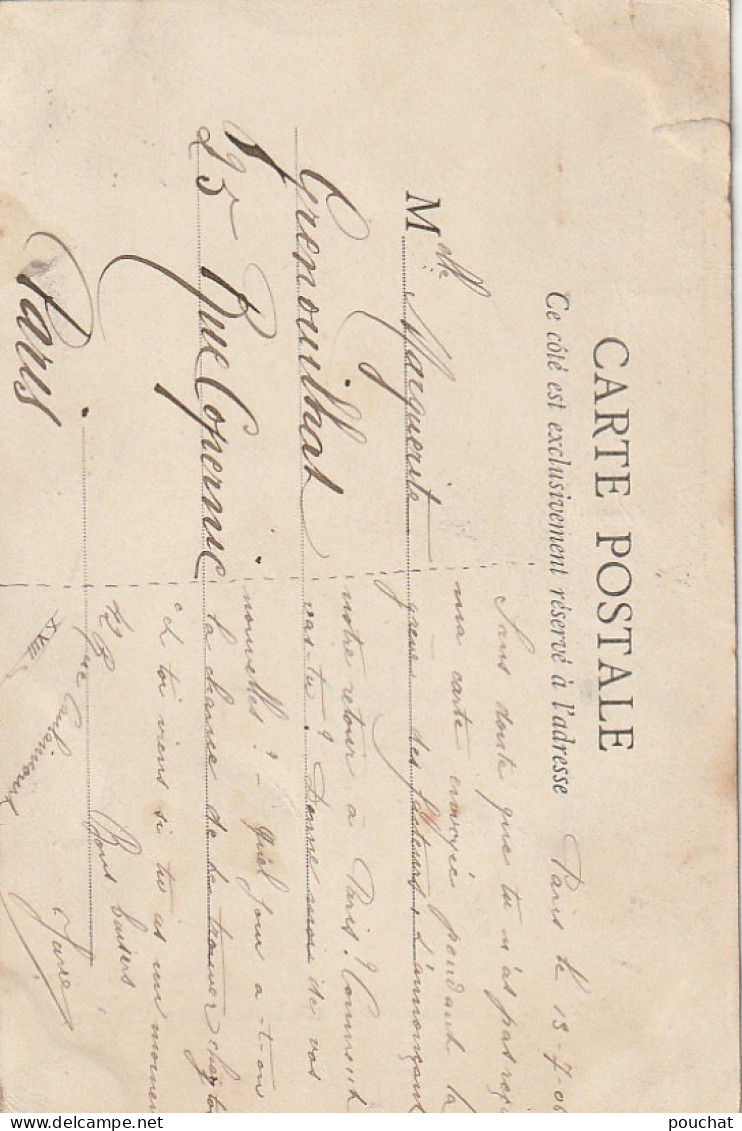 CARTE POSTALE
Ce côté est exclusivement réservé à l'adresse
Mlle Marguerite
Grenouilhat
25 Rue Copernic
Paris
Paris le 13-7-06
Sans doute que tu n'as pas reçu
ma carte envoyée pendant la
grève des facteurs, t'annonçant
notre retour à Paris? Comment
vas-tu? Donne moi de vos
nouvelles? - Quel jour a-t-on
la chance de te trouver chez toi
et toi viens si tu as un moment
Bons baisers
rue Caulaincourt
XVIII
pouchat